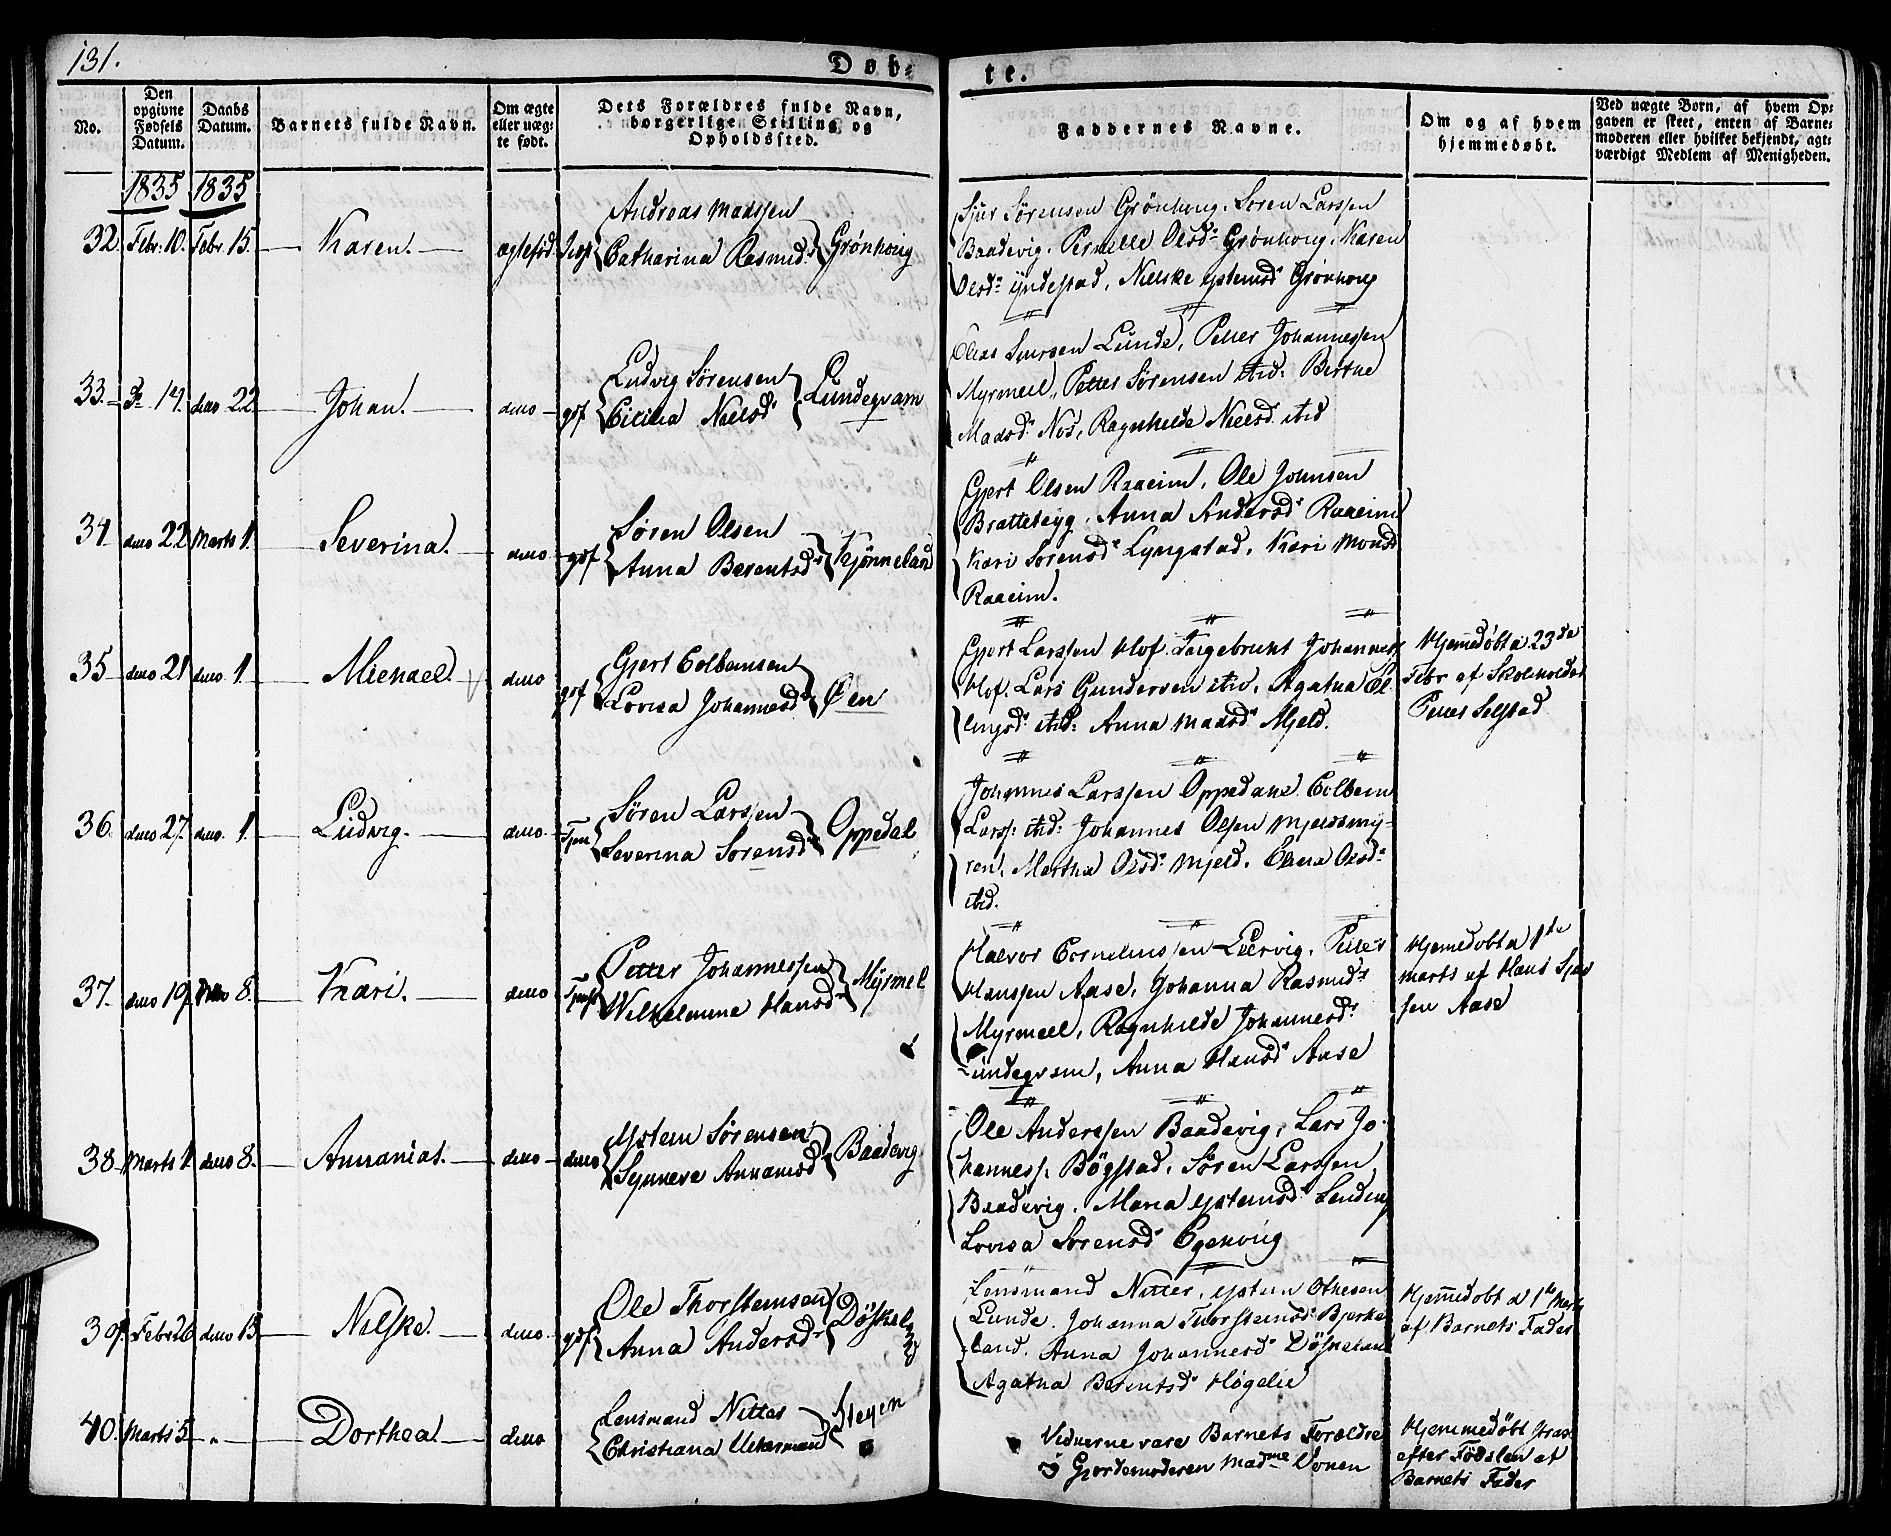 131.
Døb-
te.
No.
Den opgivne Fødsels Datum.
Daabs Datum.
Barnets fulde Navn.
Om ægte eller uæg-te født.
Dets Forældres fulde Navn, borgerlige Stilling og Opholdssted.
Faddernes Navne.
Om og af hvem hjemmedøbt.
Ved uægte Børn, af hvem Op-gaven er skeet, enten af Barne-moderen eller hvilket bekjendt, agt-værdigt Medlem af Menigheden.
1835 1835
32. Febr: 10. Febr 15. Karen. ægtefød.
Andreas Madssen
Catharina Rasmusd: Grønhoug
Sjur Sørensen Grønhoug, Søren Larssen
Baadevig, Pernille Olsd: Grønhoug, Karen
Olsd: Yndestad, Nilske Ystensd Grønhoug
33. 14. dito 22. Johan. dito gdf
Ludvig Sørensen
Cicilia Nielsd: Lundeqvam
Elias Sjursen Lunde, Petter Johannessen
Myrmeel, Petter Sørensen ibid: Birthe
Madsd: Nos, Ragnhilde Nielsd ibid
34 dito 22 Marts 1. Severina. dito gdf
Søren Olsen
Anna Berentsd: Kjønneland
Gjert Olsen Raaeim, Ole Johnsen
Bratteteyg, Anna Andersd: Raaeim
Kari Sørensd: Lyngstad, Kari Monsd
Raaeim.
35 dito 21 dito 1. Michael. dito gdf
Gjert Colbensen
Lovisa Johannesd: Øen
Gjert Larssen Hof, Ingebricht Johannes
Hof, Lars Gundersen ibid, Agatha El-
lingsd: ibid: Anna Madsd: Mjeld.
Hjemedøbt a 23de
Febr af Skoleholder
Petter Selstad
36. dito 27. dito 1. Ludvig. dito
Søren Larssen
Severina Sørensd: Oppedal
Johannes Larssen Oppedahl, Colbein
Larss: ibid: Johannes Olsen Mjeldsmy-
ren, Martha Olsd: Mjeld, Elena Olsd:
ibid.
37. dito 19. dito 8. Kari. dito
Petter Johannessen
Wilhelmine Hansd: Myrmel
Halvor Corneliussen Leervig, Petter
Hanssen Aase, Johanna Rasmusd:
Myrmeel, Ragnhilde Johannesd:
Lundeqvam, Anna Hansd: Aase
Hjemedøbt a 1ste
Marts af Hans
sen Aase
38. Marts 1. dito 8. Annanias. dito dito
Ystein Sørensen
Synneve Annanisd: Baadevig
Ole Anderssen Baadevig, Lars Jo-
hanness: Bøgstad, Søren Larssen
Baadevig, Maria Ysteinsd: Lending
Lovisa Sørensd: Egehoug
39. Febr 26 dito 15. Nilske. dito gdf
Ole Thorsteinsen
Anna Andersd:
Lensmand Nitter, Ystein Othesen
Lunde, Johanna Thorsteinsd: Bjerke-
land, Anna Johannesd: Døskeland
Agatha Berentsd: Høgelie
Hjemedøbt a 1ste Marts
af Barnets Fader
40. Marts 5. Dorthea. dito
Lensmand Nitter
Christiana Uchermand Steyen
Vidnerne vare Barnets Forældre
og Gjordemoderen Madme Vonen
Hjemmedøbt strax
efter Fødslen af
Barnets Fader